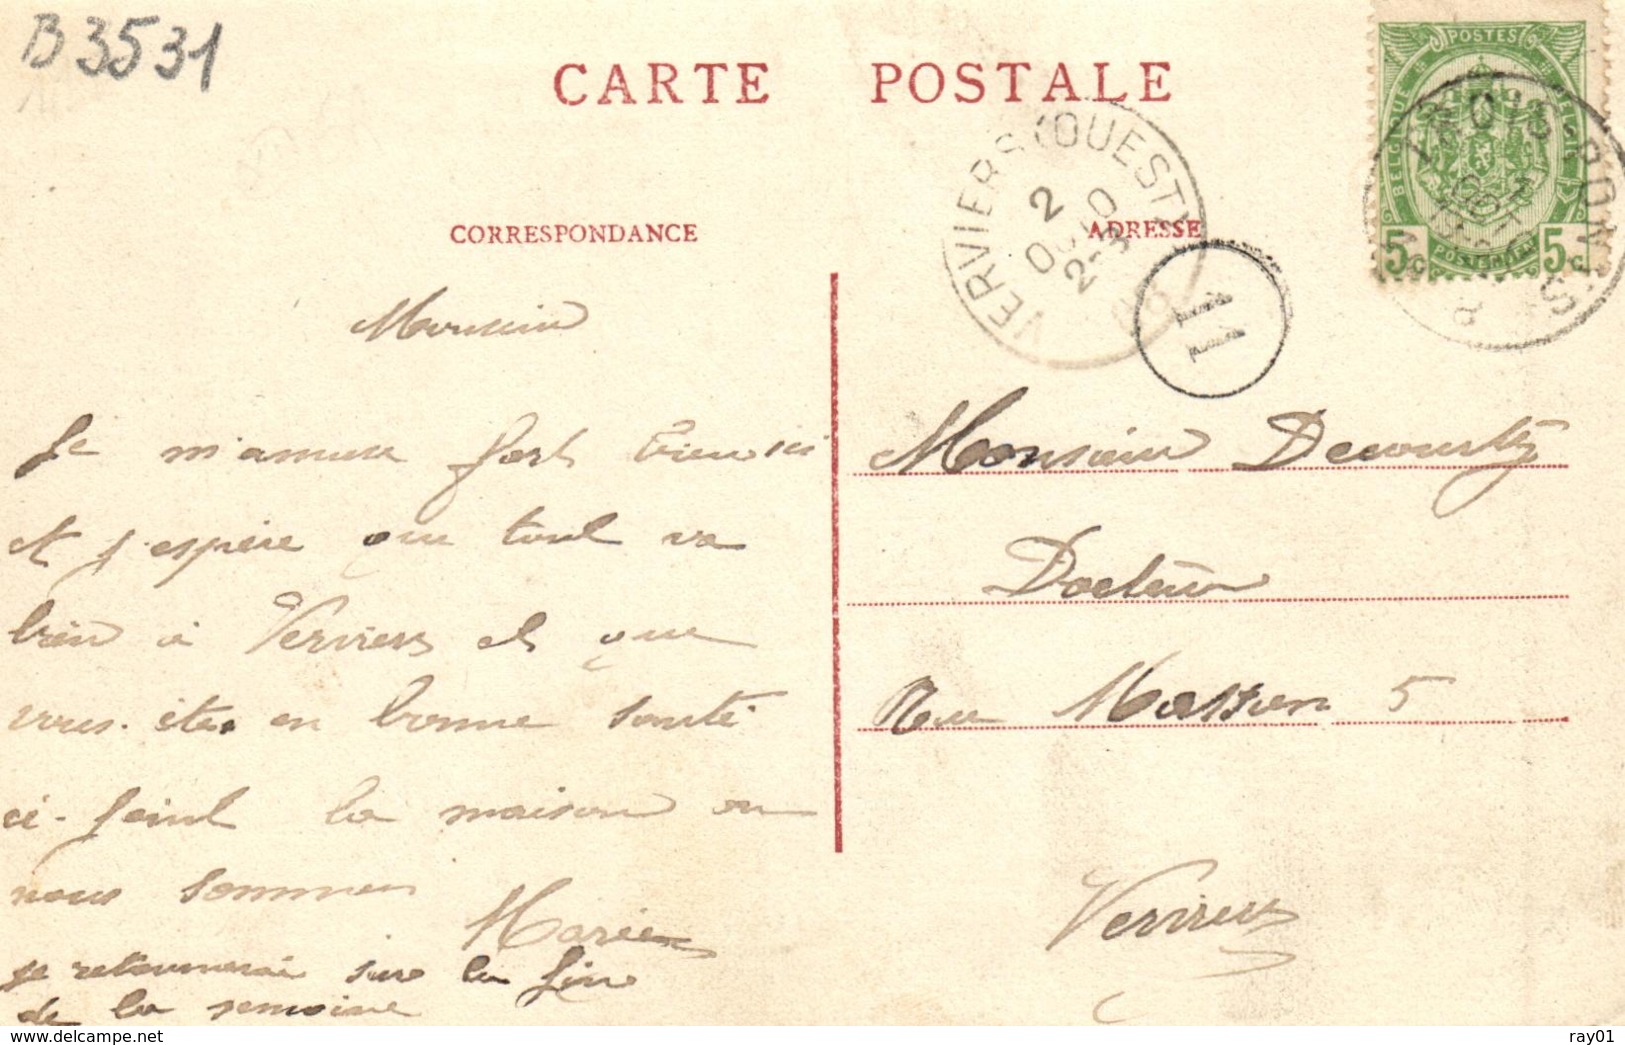 B3531
CARTE POSTALE
POSTES
BELGIQUE
BELGIE
5c POSTERIJEN 5c
TROIS-PONTS
VERVIERS (OUEST)
2
2-3
11
CORRESPONDANCE
ADRESSE
Monsieur
Je m'amuse fort bien ici
et j'espère que tout va
bien à Verviers et que
vous êtes en bonne santé
ci-joint la maison ou
nous sommes
Marie
je retournerai sur la fin
de la semaine
Monsieur Decourty
Docteur
Rue Masson 5
Verviers
www.delcampe.net
ray01